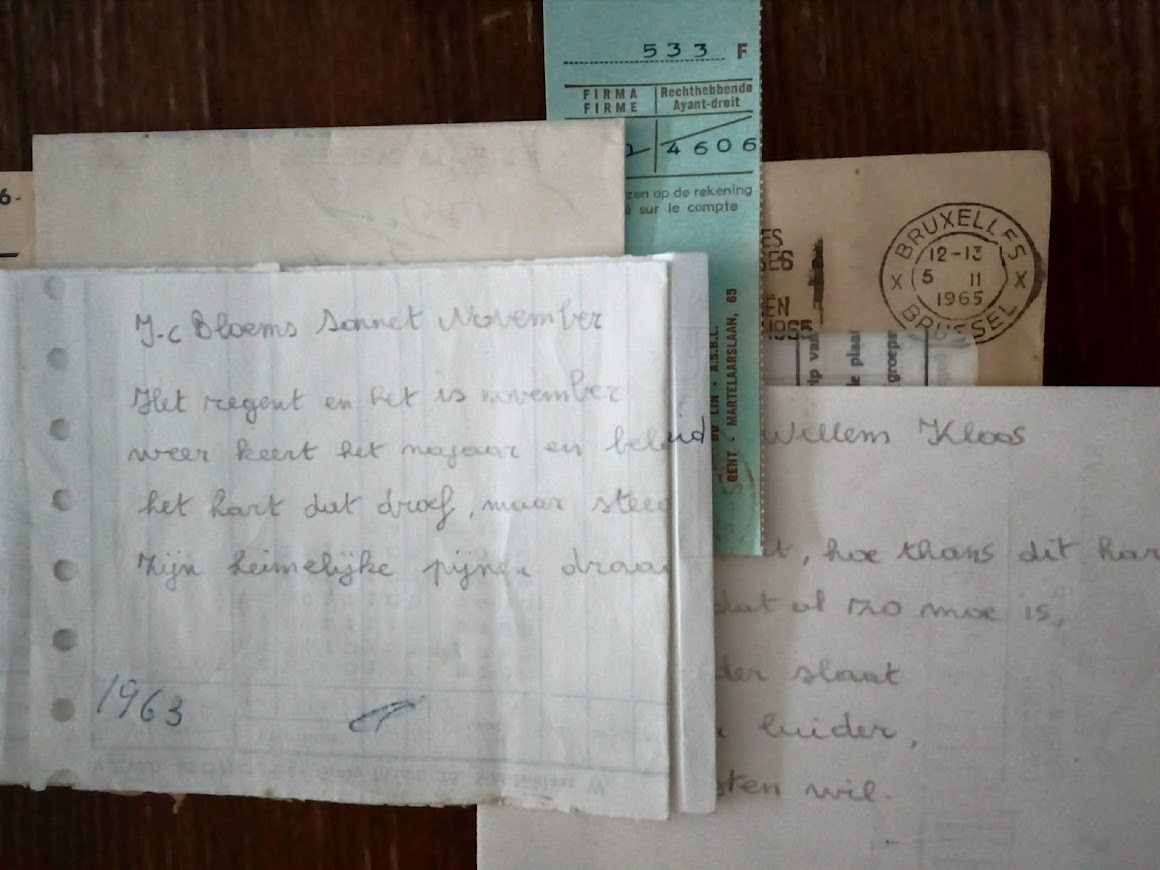 533 F
FIRMA
FIRME
Rechthebbende
Ayant-droit
4606
op de rekening
sur le compte
GENT - MARTELAARSLAAN, 65
BRUXELLES
12-13
5 11
1965
BRUSSEL
J.c Bloems Sonnet November
Het regent en het is november
weer keert het najaar en beluid
het hart dat droef, maar steed
Zijn heimelijke pijnen draa
1963
Willem Kloos
t, hoe thans dit har
dat al zoo moe is,
der slaat
luider,
ten wil.